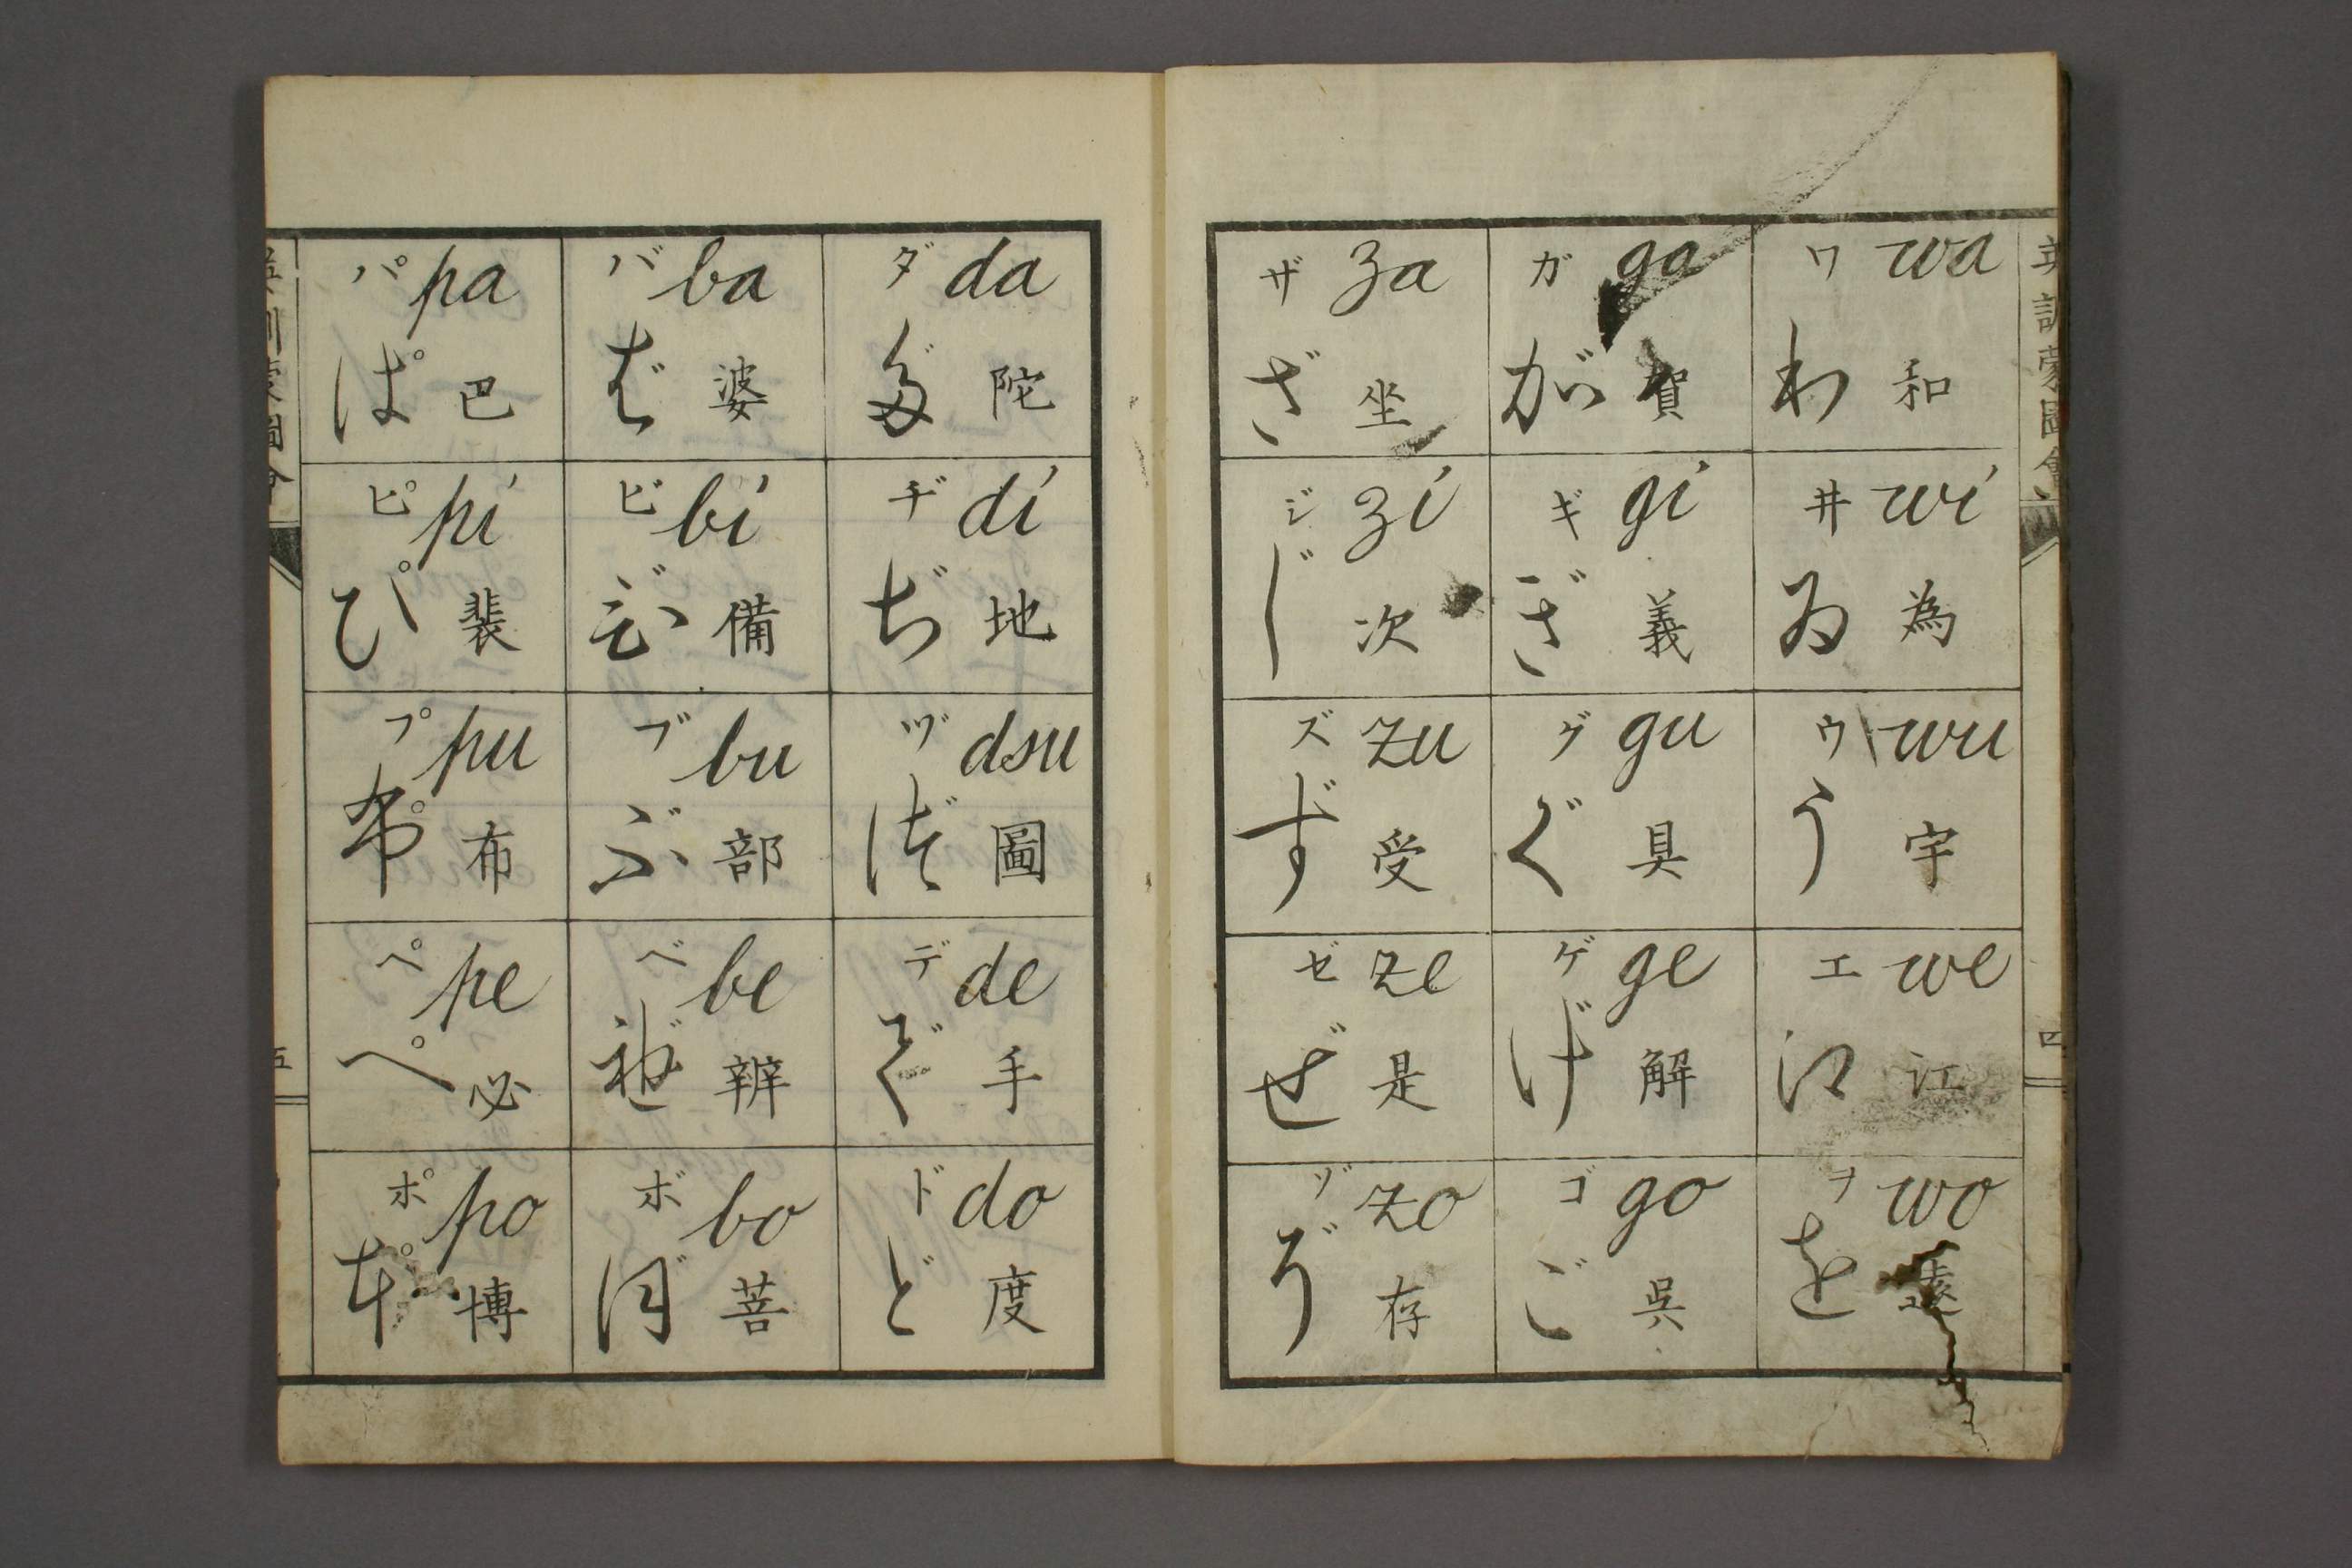 英訓蒙圖會
四
wa ワ 和 わ
wi 井 為 ゐ
wu ウ 宇 う
we エ 江 江
wo ヲ 遠 を
ga ガ 賀 が
gi ギ 義 ぎ
gu グ 具 ぐ
ge ゲ 解 げ
go ゴ 呉 ご
za ザ 坐 ざ
zi ジ 次 じ
zu ズ 受 ず
ze ゼ 是 ぜ
zo ゾ 存 ぞ
da ダ 陀 だ
di ヂ 地 ぢ
dsu ヅ 圖 づ
de デ 手 で
do ド 度 ど
ba バ 婆 ば
bi ビ 備 び
bu ブ 部 ぶ
be ベ 辨 べ
bo ボ 菩 ぼ
pa パ 巴 ぱ
pi ピ 裴 ぴ
pu プ 布 ぷ
pe ペ 必 ぺ
po ポ 博 ぽ
英訓蒙圖會
五